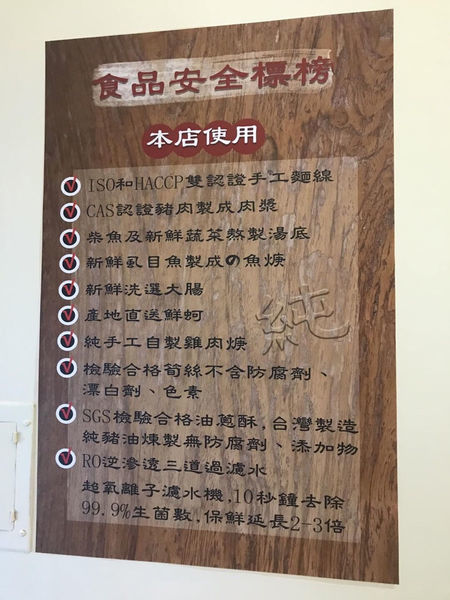 食品安全標榜
本店使用
ISO和HACCP雙認證手工麵線
CAS認證豬肉製成肉漿
柴魚及新鮮蔬菜熬製湯底
新鮮虱目魚製成の魚焿
新鮮洗選大腸
產地直送鮮蚵
純手工自製雞肉焿
檢驗合格筍絲不含防腐劑、
漂白劑、色素
SGS檢驗合格油蔥酥,台灣製造
純豬油煉製無防腐劑、添加物
RO逆滲透三道過濾水
超氧離子濾水機,10秒鐘去除
99.9%生菌數,保鮮延長2-3倍
純